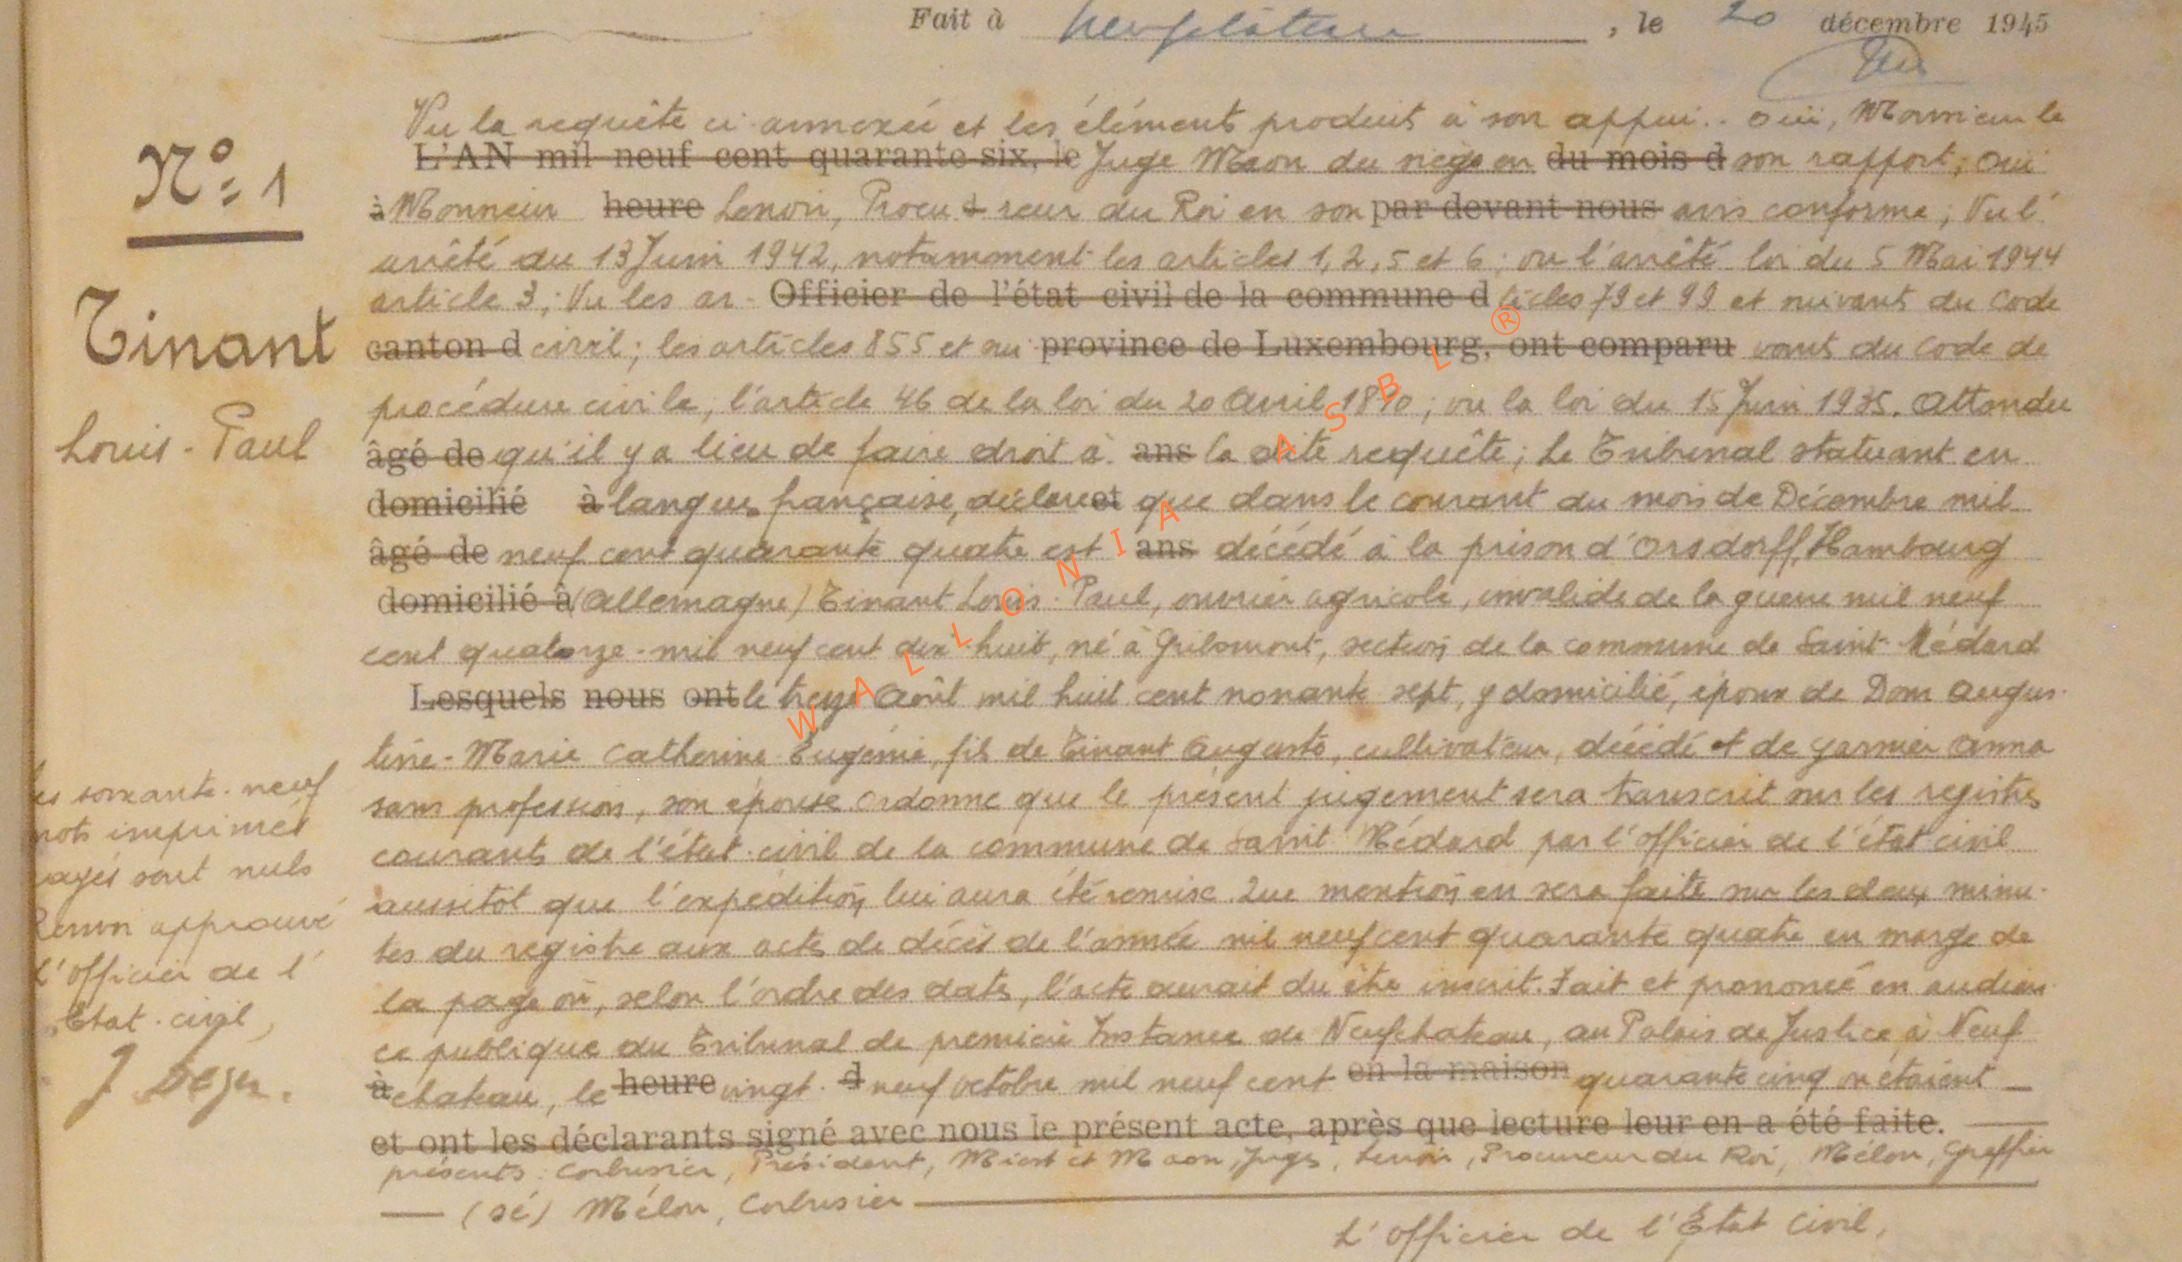 Fait à Neufchâteau, le 20 décembre 1945
Vu la requête ci annexée et les éléments produit à son appui.. Oui, Monsieur le
N° 1
L'AN mil neuf cent quarante-six, le Juge Maon du siège en du mois d son rapport; oui
à Monsieur heure Lenoir, Procu d reur du Roi en son par devant nous avis conforme; Vu l'
arrêté du 13 Juin 1942, notamment les articles 1, 2, 5 et 6; vu l'arrêté loi du 5 Mai 1944
article 3; Vu les ar- Officier de l'état civil de la commune d ticles 79 et 99 et suivants du Code
Tinant
canton d civil; les articles 855 et sui province de Luxembourg, ont comparu vants du Code de
procédure civile, l'article 46 de la loi du 20 Avril 1810; vu la loi du 15 Juin 1935. Attendu
Louis-Paul
âgé de qu'il y a lieu de faire droit à ans la dite requête; Le Tribunal statuant en
domicilié à langue française, déclare et que dans le courant du mois de Décembre mil
âgé de neuf cent quarante quatre est ans décédé à la prison d'Orsdorff, Hambourg
domicilié à (Allemagne) Tinant Louis-Paul, ouvrier agricole, invalide de la guerre mil neuf
cent quatorze-mil neuf cent dix-huit, né à Gribomont, section de la commune de Saint-Médard
Lesquels nous ont le treize Août mil huit cent nonante sept, y domicilié, époux de Dom Augus-
tine-Marie Catherine Eugénie, fils de Tinant Auguste, cultivateur, décédé et de Garnier Anna
sans profession, son épouse Ordonne que le présent jugement sera transcrit sur les registres
courants de l'état-civil de la commune de Saint-Médard par l'officier de l'état civil
aussitôt que l'expédition lui aura été remise. Que mention en sera faite sur les deux minu-
tes du registre aux actes de décès de l'année mil neuf cent quarante quatre en marge de
la page où, selon l'ordre des dates, l'acte aurait du être inscrit. Fait et prononcé en audien-
ce publique du Tribunal de première Instance de Neufchateau, au Palais de Justice à Neuf
à chateau, le heure vingt- d neuf octobre mil neuf cent en la maison quarante cinq où étaient
et ont les déclarants signé avec nous le présent acte, après que lecture leur en a été faite.
présents: Corbusier, Président, Miest et Maon, Juges, Lenoir, Procureur du Roi, Mélon, Greffier
(sé) Mélon, Corbusier
L'officier de l'Etat Civil,
les soixante-neuf
mots imprimés
rayés sont nuls
Renvoi approuvé
L'officier de l'
Etat-civil,
WALLONIA ASBL ®